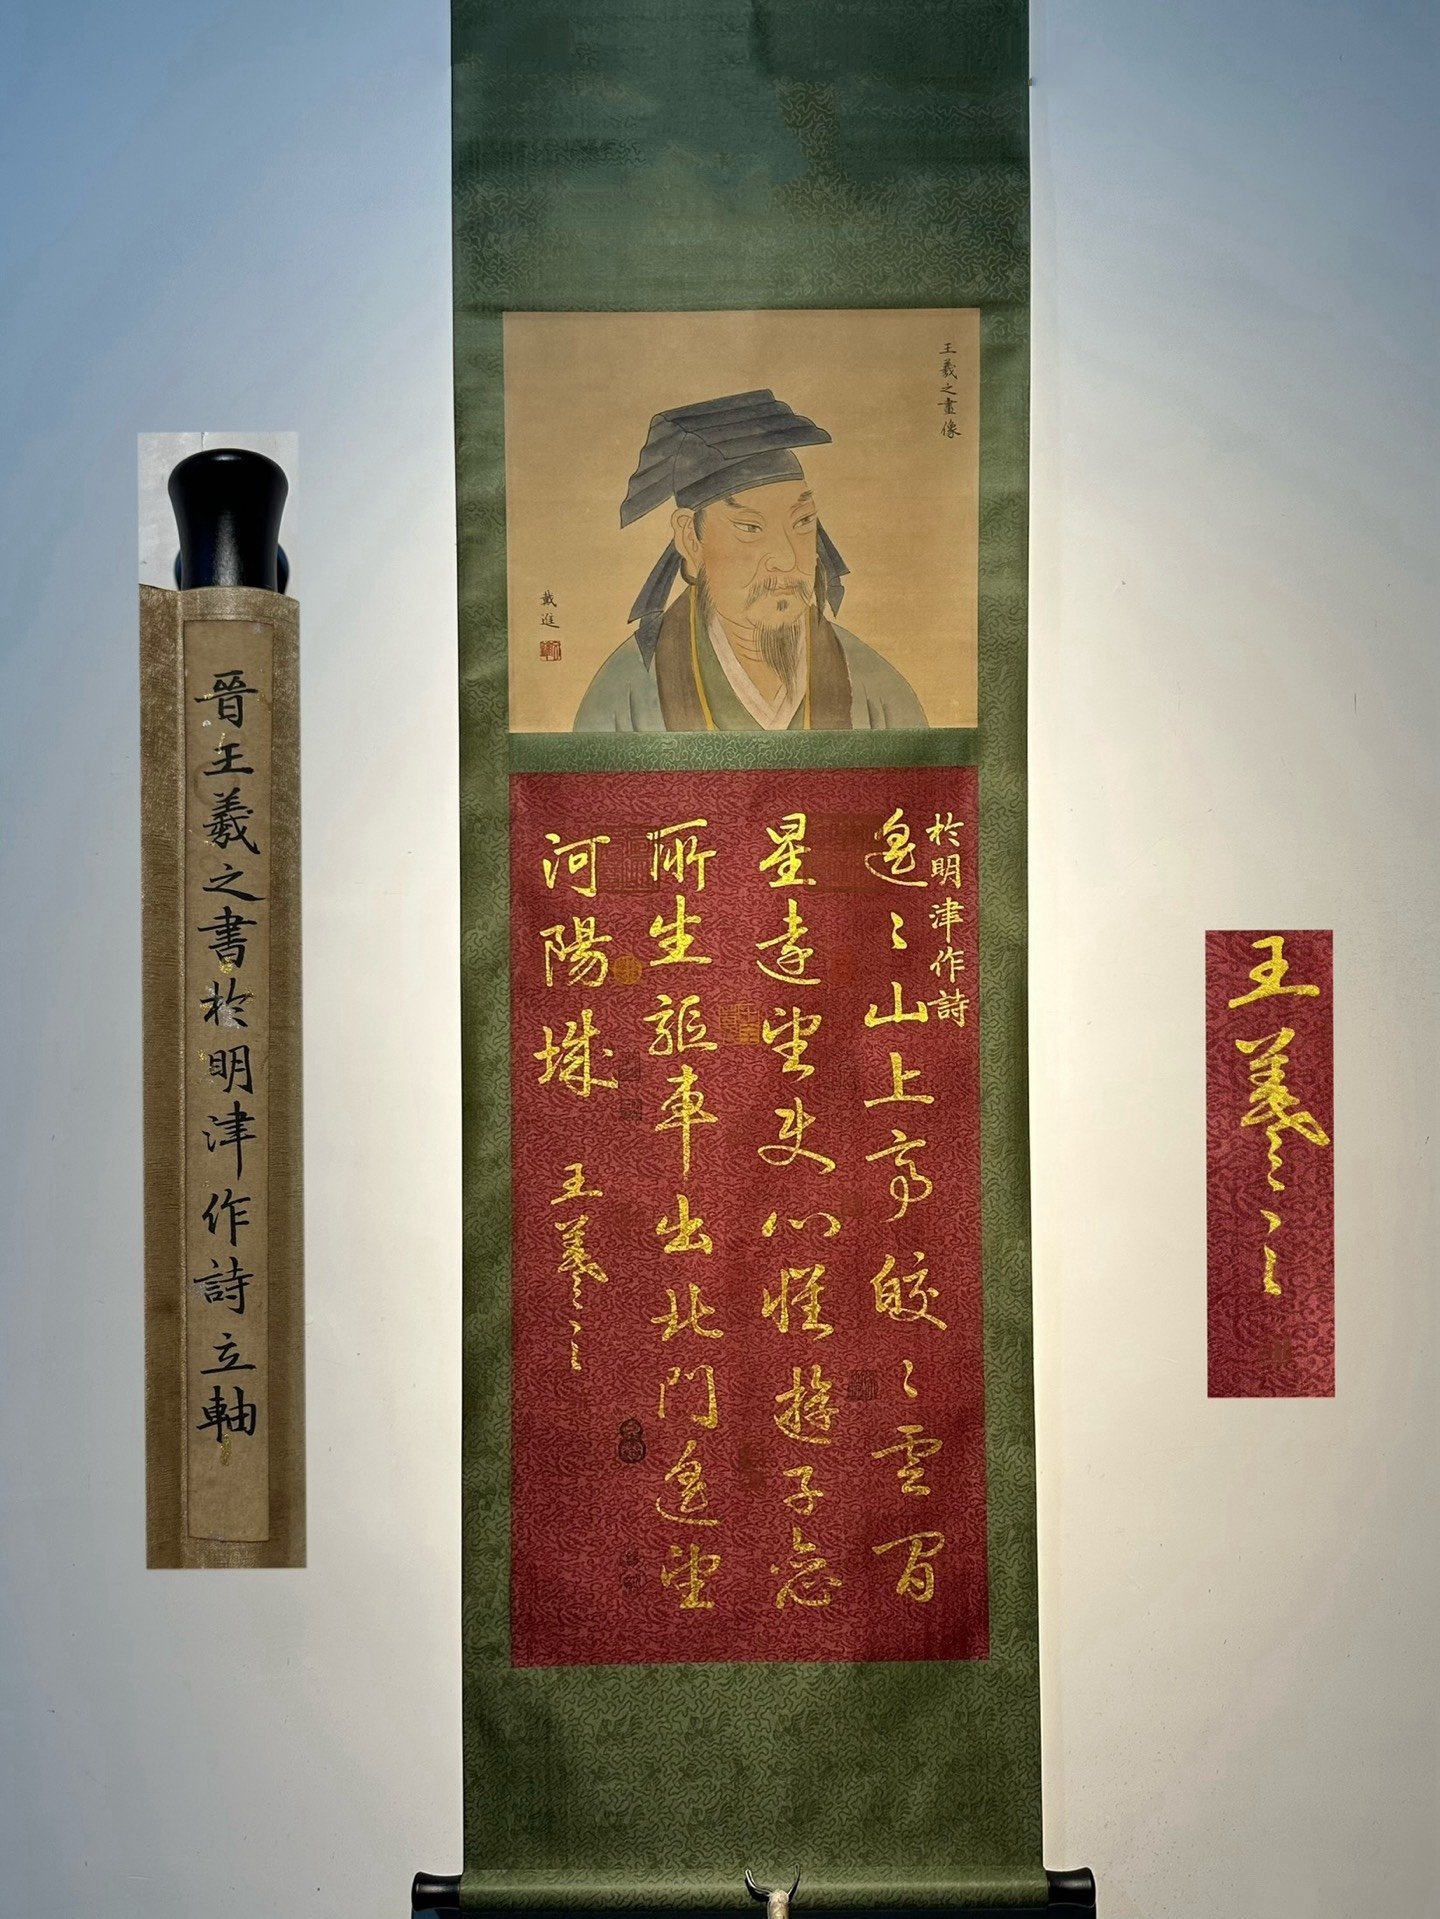 王羲之畫像
戴進
於明津作詩
遙〻山上亭皎〻雲間
星遠望使心懷遊子戀
所生驅車出北門遙望
河陽城
王羲之
晉王羲之書於明津作詩立軸
王羲之